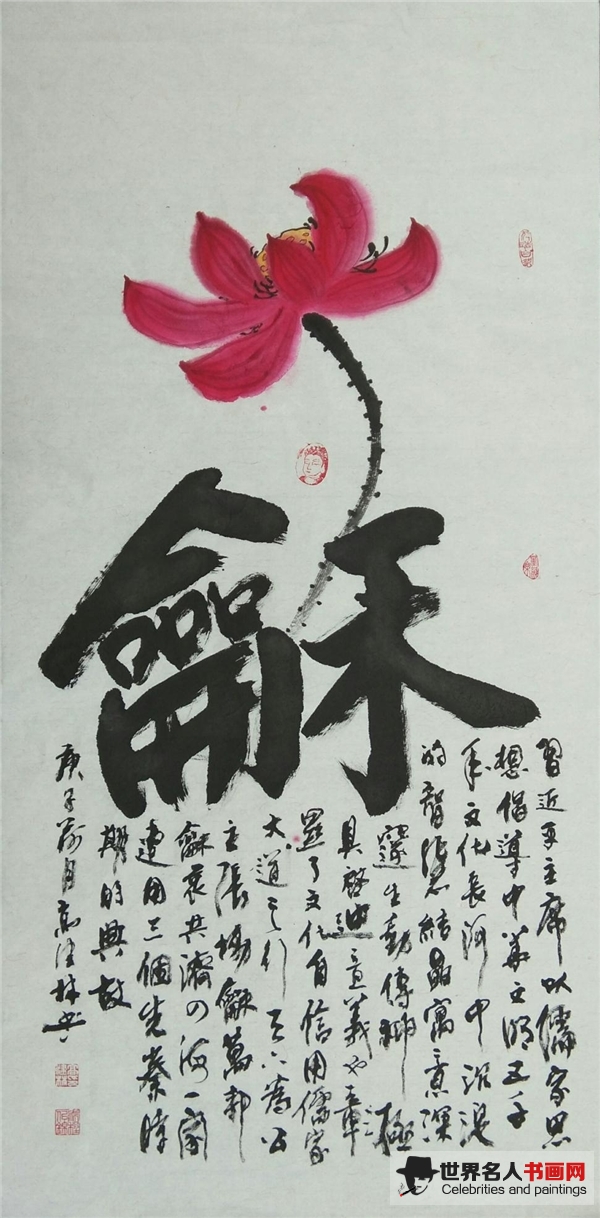 龢
習近平主席以儒家思
想倡導中華文明五千
年文化長河中沉淀
的智慧結晶寓意深
邃生動傳神極
具啟迪意義也彰
顯了文化自信用儒家
大道之行天下為公
主張協龢萬邦
龢衷共濟四海一家
連用三個先秦時
期的典故
庚子 月高 林書
世界名人书画网
Celebrities and paintings